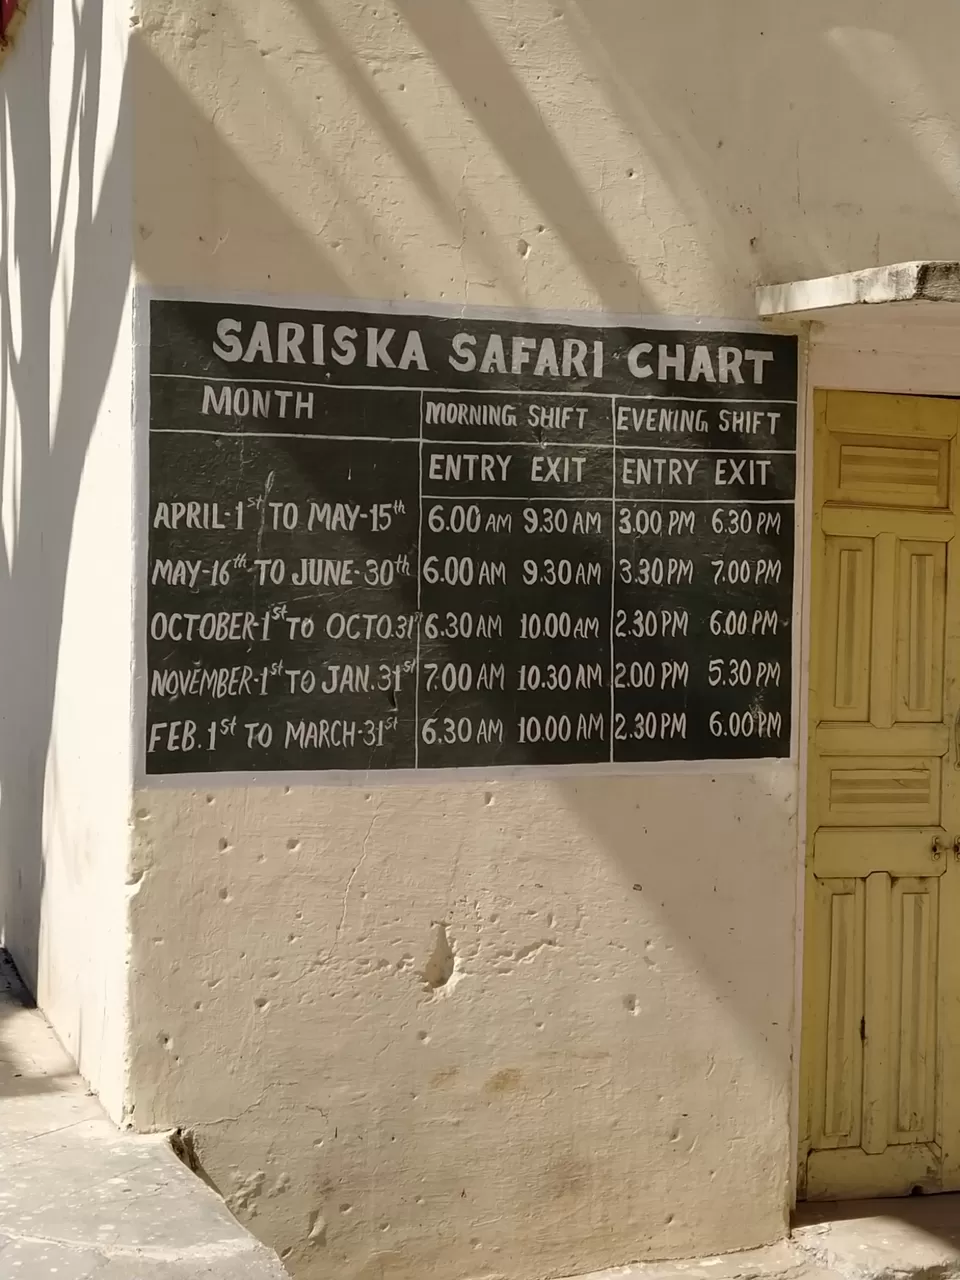 SARISKA SAFARI CHART
MONTH MORNING SHIFT EVENING SHIFT
ENTRY EXIT ENTRY EXIT
APRIL-1st TO MAY-15th 6.00 AM 9.30 AM 3.00 PM 6.30 PM
MAY-16th TO JUNE-30th 6.00 AM 9.30 AM 3.30 PM 7.00 PM
OCTOBER-1st TO OCTO.31 6.30 AM 10.00 AM 2.30 PM 6.00 PM
NOVEMBER-1st TO JAN.31st 7.00 AM 10.30 AM 2.00 PM 5.30 PM
FEB.1st TO MARCH-31st 6.30 AM 10.00 AM 2.30 PM 6.00 PM